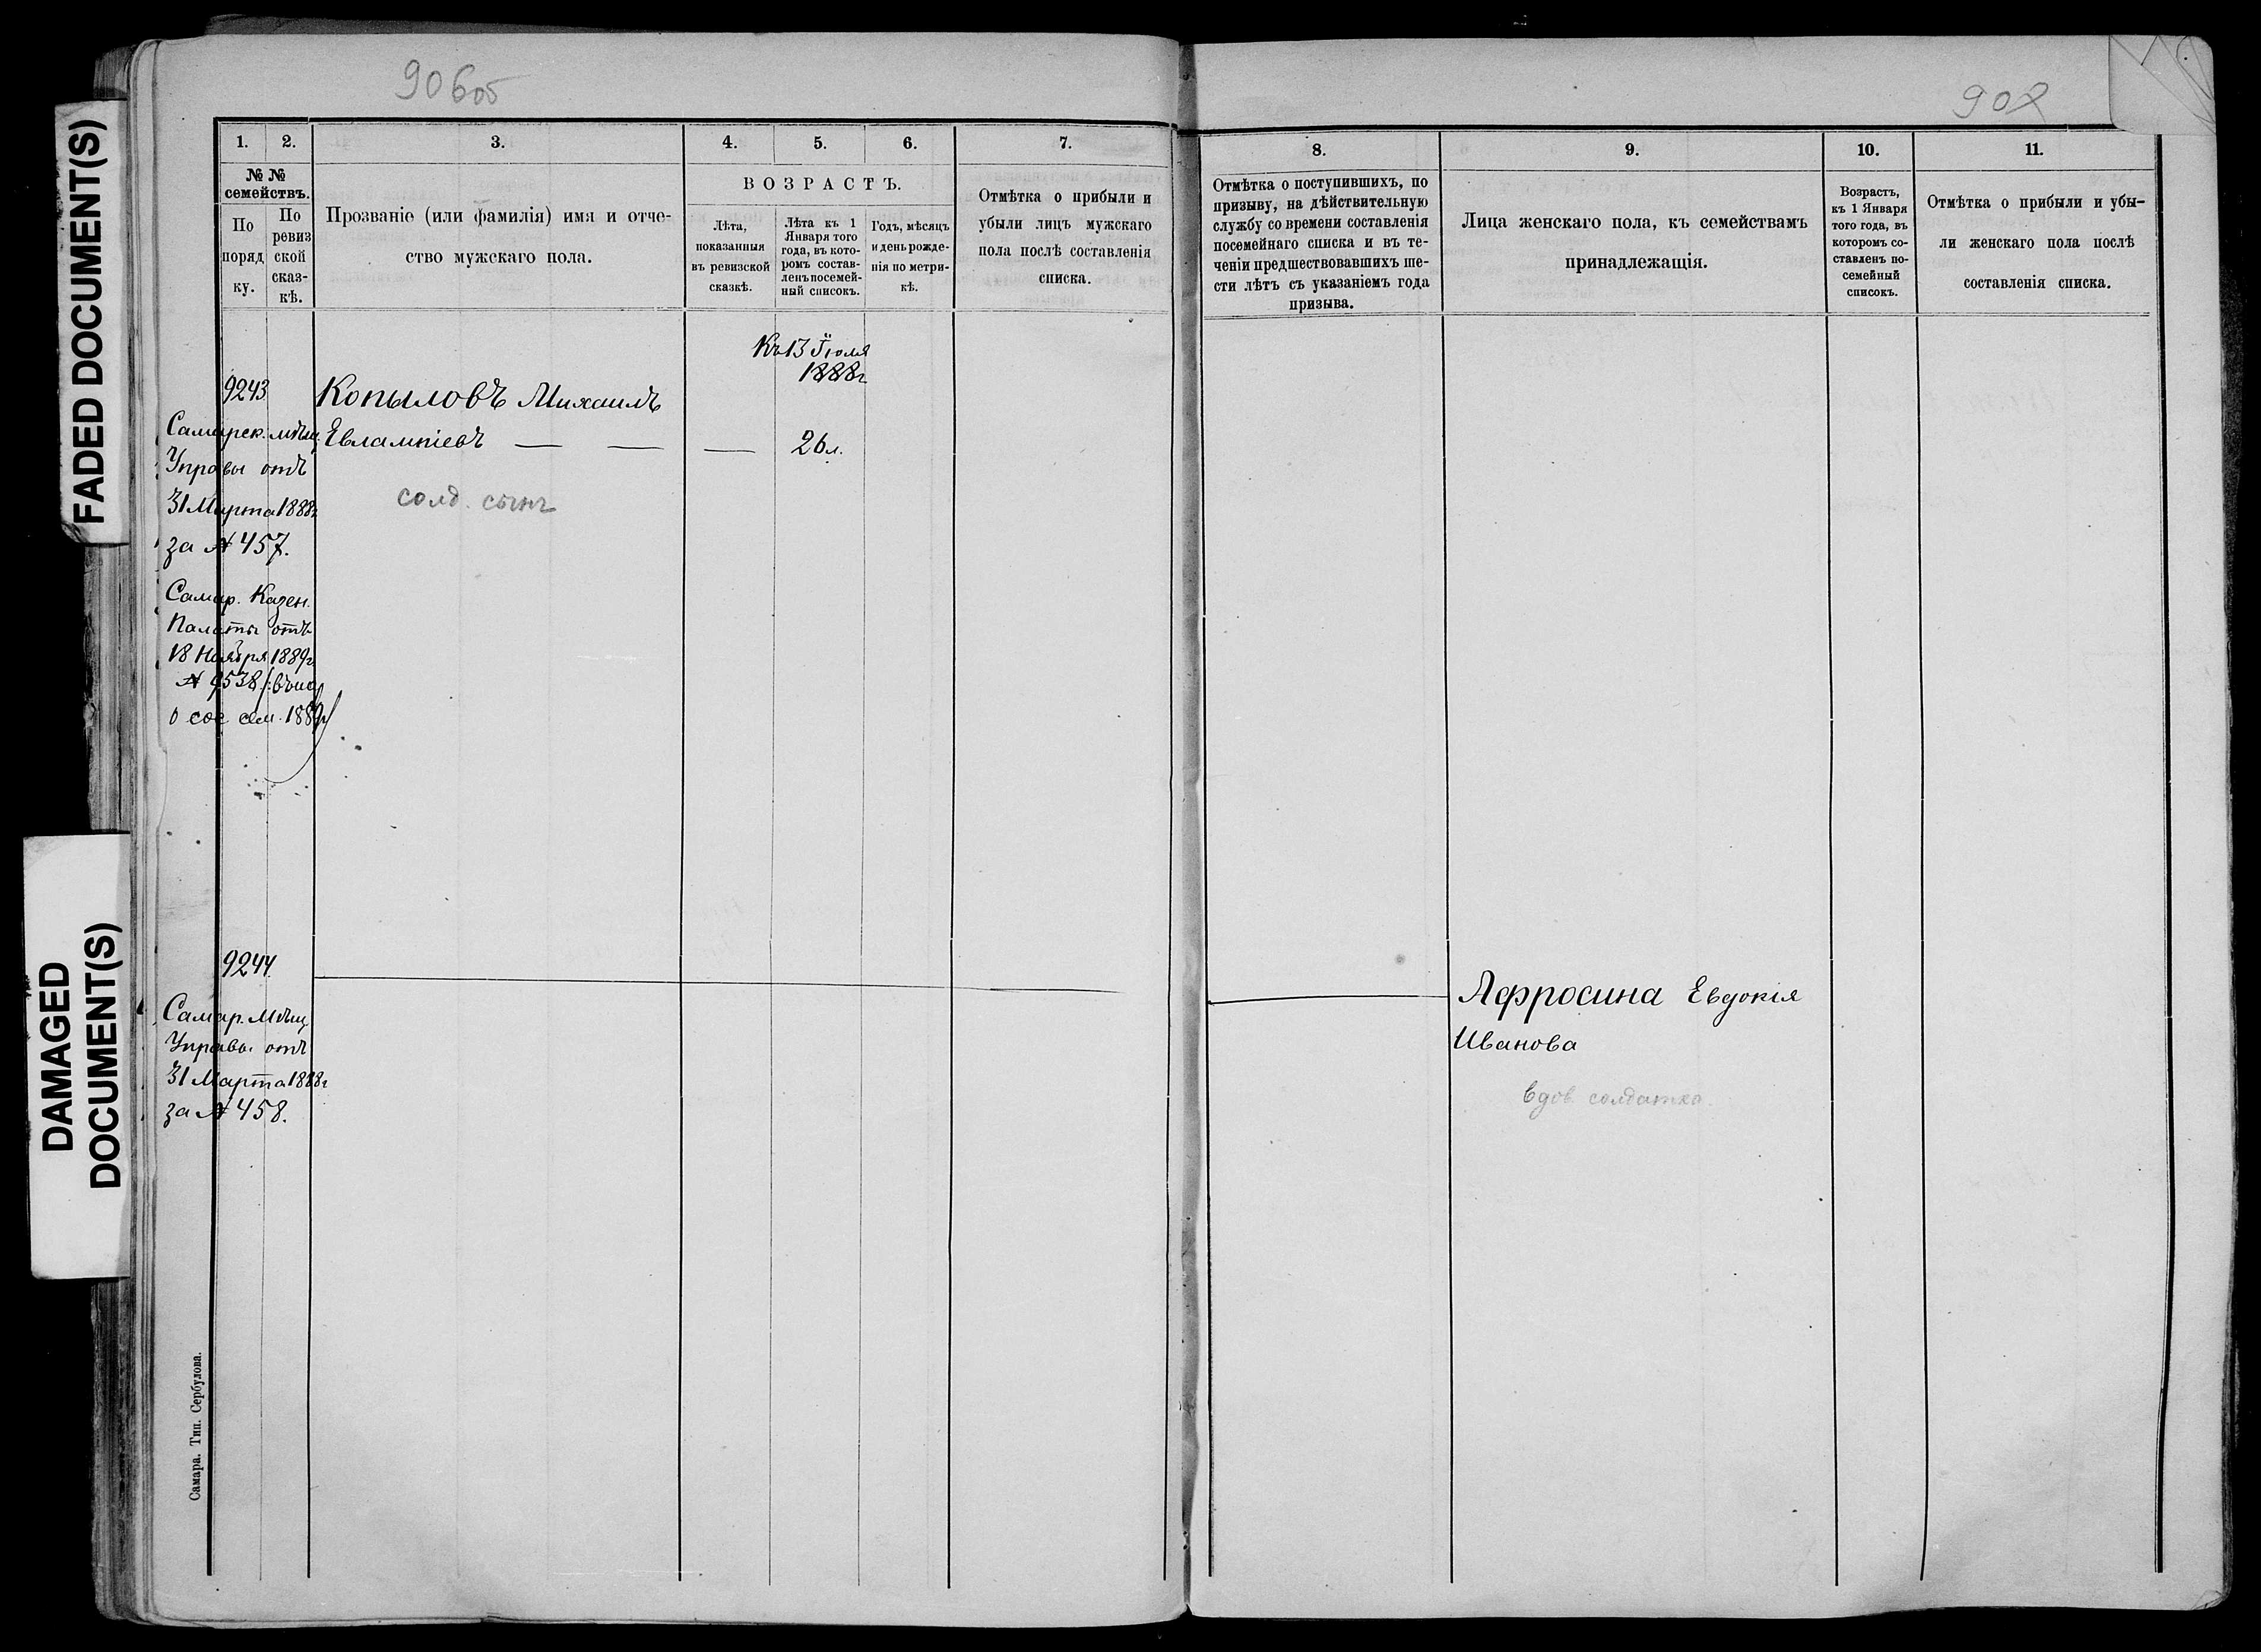 FADED DOCUMENT(S)
DAMAGED
DOCUMENT(S)
906об
1. 2. 3. 4. 5. 6. 7.
№ №
семействъ.
По
поряд
ку.
По
ревиз
ской
сказ-
кѣ.
Прозваніе (или фамилія) имя и отче-
ство мужскаго пола.
ВОЗРАСТЪ.
Лѣта,
показанныя
въ ревизской
сказкѣ.
Лѣта къ 1
Января того
года, въ кото-
ромъ состав-
ленъ посемей-
ный списокъ.
Годъ, мѣсяцъ
и день рожде-
нія по метри-
кѣ.
Отмѣтка о прибыли и
убыли лицъ мужскаго
пола послѣ составленія
списка.
Къ 13 Іюля
1888г
9243
Копыловъ Михаилъ
Евлампіевъ — — — 26 л.
солд. сынъ
Самарск. мѣщ.
Управы отъ
31 Марта 1888г
за № 457.
Самар. Казен.
Палаты отъ
18 Ноября 1889г
№ 9538
9244
Самар. Мѣщ.
Управы отъ
31 Марта 1888г
за № 458.
Самара. Тип. Сербулова.
8. 9. 10. 11.
Отмѣтка о поступившихъ, по
призыву, на дѣйствительную
службу со времени составленія
посемейнаго списка и въ те-
ченіи предшествовавшихъ ше-
сти лѣтъ съ указаніемъ года
призыва.
Лица женскаго пола, къ семействамъ
принадлежащія.
Возрастъ,
къ 1 Января
того года, въ
которомъ со-
ставленъ по-
семейный
списокъ.
Отмѣтка о прибыли и убы-
ли женскаго пола послѣ
составленія списка.
Афросина Евдокія
Иванова
вдов солдатка